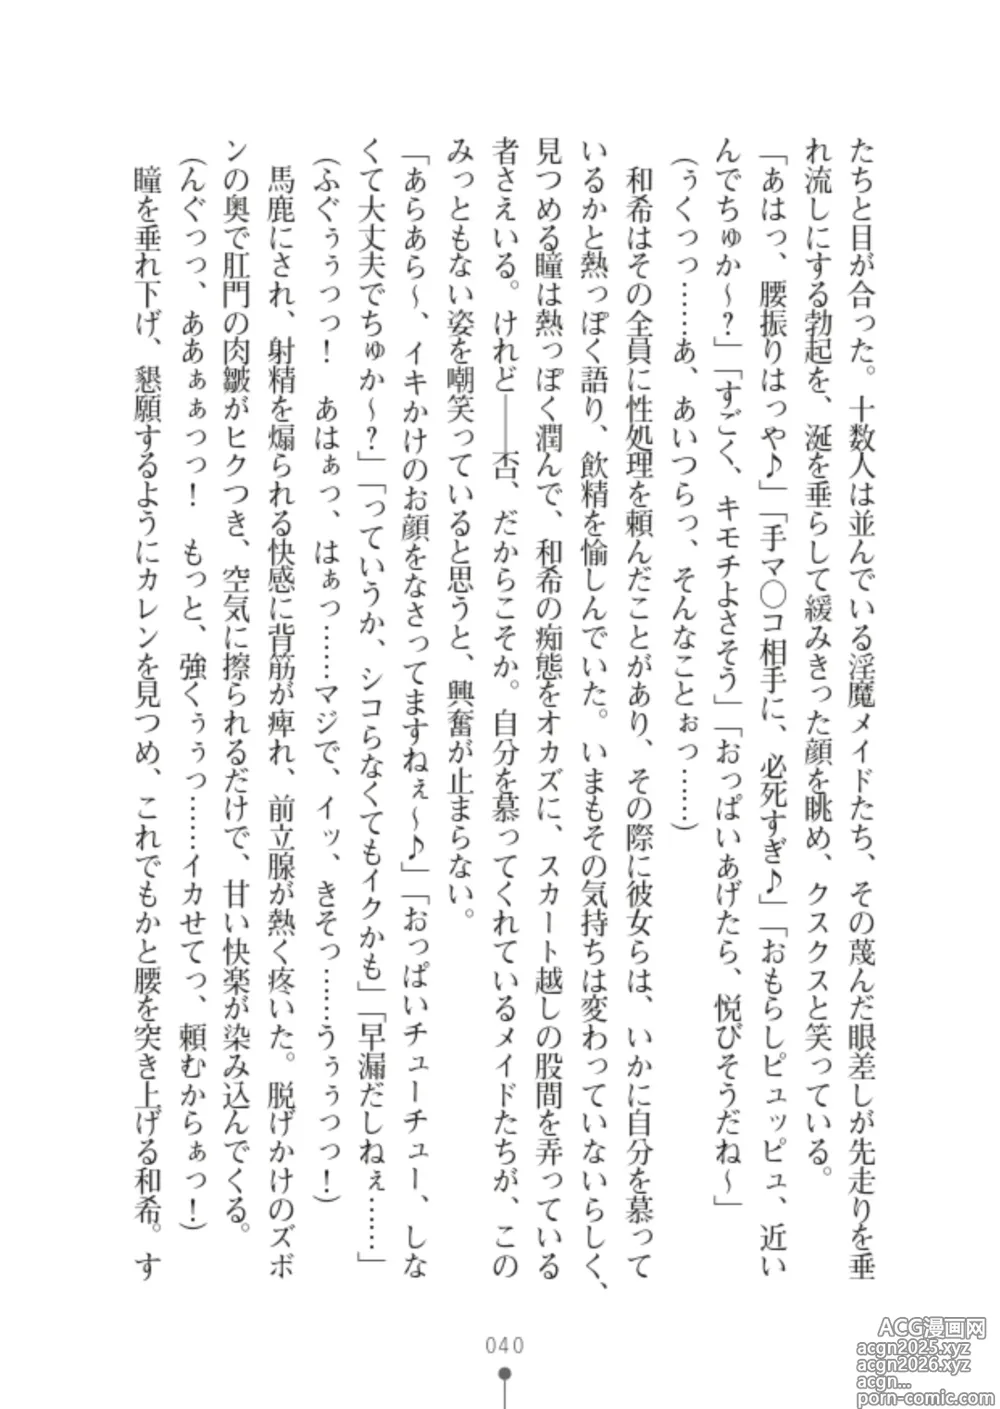 たちと目が合った。十数人は並んでいる淫魔メイドたち、その蔑んだ眼差しが先走りを垂
れ流しにする勃起を、涎を垂らして緩みきった顔を眺め、クスクスと笑っている。
「あはっ、腰振りはっや♪」「手マ〇コ相手に、必死すぎ♪」「おもらしピュッピュ、近い
んでちゅか～？」「すごく、キモチよさそう」「おっぱいあげたら、悦びそうだね～」
(ぅくっっ……あ、あいつらっ、そんなことぉっ……)
和希はその全員に性処理を頼んだことがあり、その際に彼女らは、いかに自分を慕って
いるかと熱っぽく語り、飲精を愉しんでいた。いまもその気持ちは変わっていないらしく、
見つめる瞳は熱っぽく潤んで、和希の痴態をオカズに、スカート越しの股間を弄っている
者さえいる。けれど――否、だからこそか。自分を慕ってくれているメイドたちが、この
みっともない姿を嘲笑っていると思うと、興奮が止まらない。
「あらあら～、イキかけのお顔をなさってますねぇ～♪」「おっぱいチューチュー、しな
くて大丈夫でちゅか～？」「っていうか、シコらなくてもイクかも」「早漏だしねぇ……」
(ふぐぅぅっっ！　あはぁっ、はぁっ……マジで、イッ、きそっ……うぅぅっっ！)
馬鹿にされ、射精を煽られる快感に背筋が痺れ、前立腺が熱く疼いた。脱げかけのズボ
ンの奥で肛門の肉皺がヒクつき、空気に擦られるだけで、甘い快楽が染み込んでくる。
(んぐっっ、ああぁぁっっ！　もっと、強くぅぅっ……イカせてっ、頼むからぁっ！)
瞳を垂れ下げ、懇願するようにカレンを見つめ、これでもかと腰を突き上げる和希。す
040
ACG漫画网
acgn2025.xyz
acgn2026.xyz
acgn...
porn-comic.com